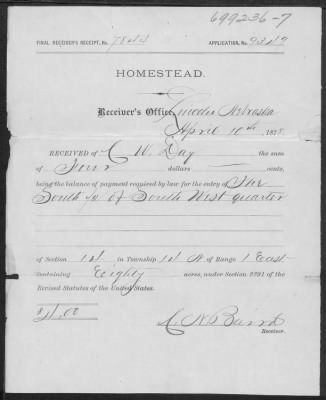 699236-7
FINAL RECEIVER'S RECEIPT, No. 7844 APPLICATION, No. 9349
HOMESTEAD.
Receiver's Office, Lincoln Nebraska
April 10th, 1878.
RECEIVED of C W. Day the sum
of Four dollars cents,
being the balance of payment required by law for the entry of The
South ½ of South West quarter
of Section 12 in Township 12 N of Range 1 East
containing Eighty acres, under Section 2291 of the
Revised Statutes of the United States.
$4.00
Receiver.